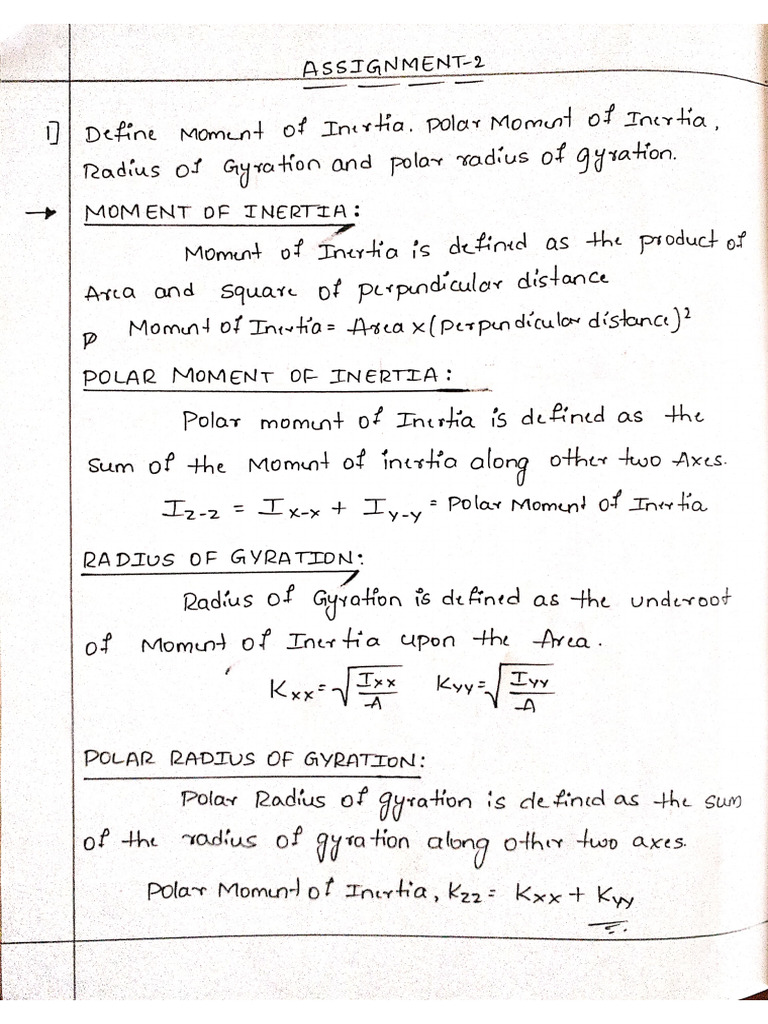 ASSIGNMENT-2
1] Define Moment of Inertia. Polar Moment of Inertia,
Radius of Gyration and polar radius of gyration.
→ MOMENT OF INERTIA:
Moment of Inertia is defined as the product of
Area and square of perpendicular distance
Moment of Inertia = Area × (perpendicular distance)²
POLAR MOMENT OF INERTIA:
Polar moment of Inertia is defined as the
sum of the Moment of inertia along other two Axes.
I z-z = I x-x + I y-y = Polar Moment of Inertia
RADIUS OF GYRATION:
Radius of Gyration is defined as the underoot
of Moment of Inertia upon the Area.
Kxx = √(Ixx/A) Kyy = √(Iyy/A)
POLAR RADIUS OF GYRATION:
Polar Radius of gyration is defined as the sum
of the radius of gyration along other two axes.
Polar Moment of Inertia, Kzz = Kxx + Kyy